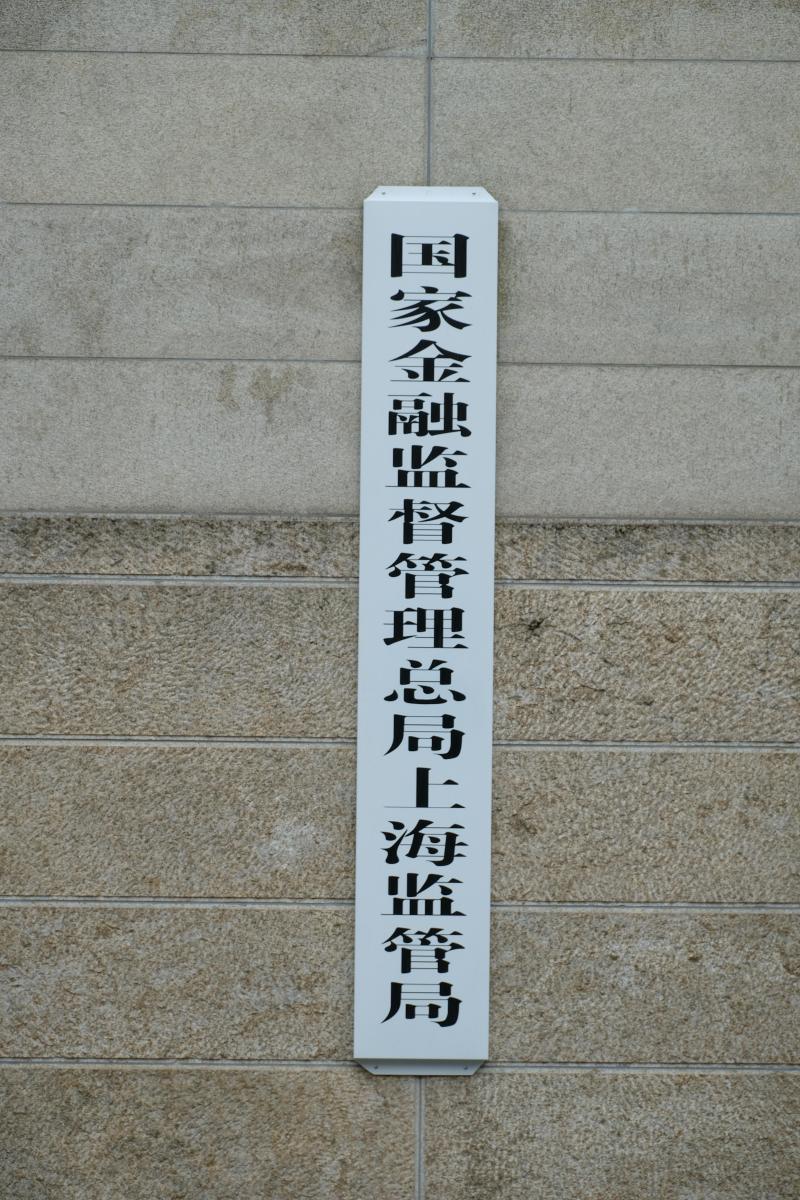 国家金融监督管理总局上海监管局